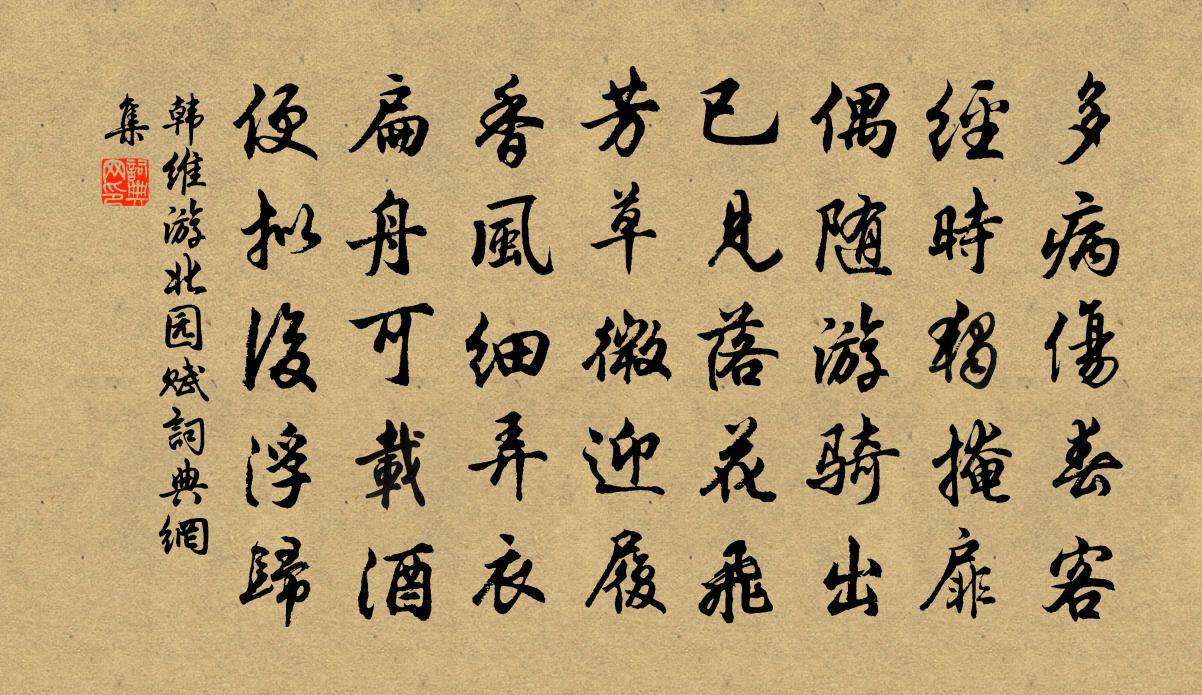 多病傷春客
經時獨掩扉
偶随游騎出
已見落花飛
芳草微迎履
香風細弄衣
扁舟可載酒
便拟後浮歸
韩維游北园赋詞典網
集
詞典
网印